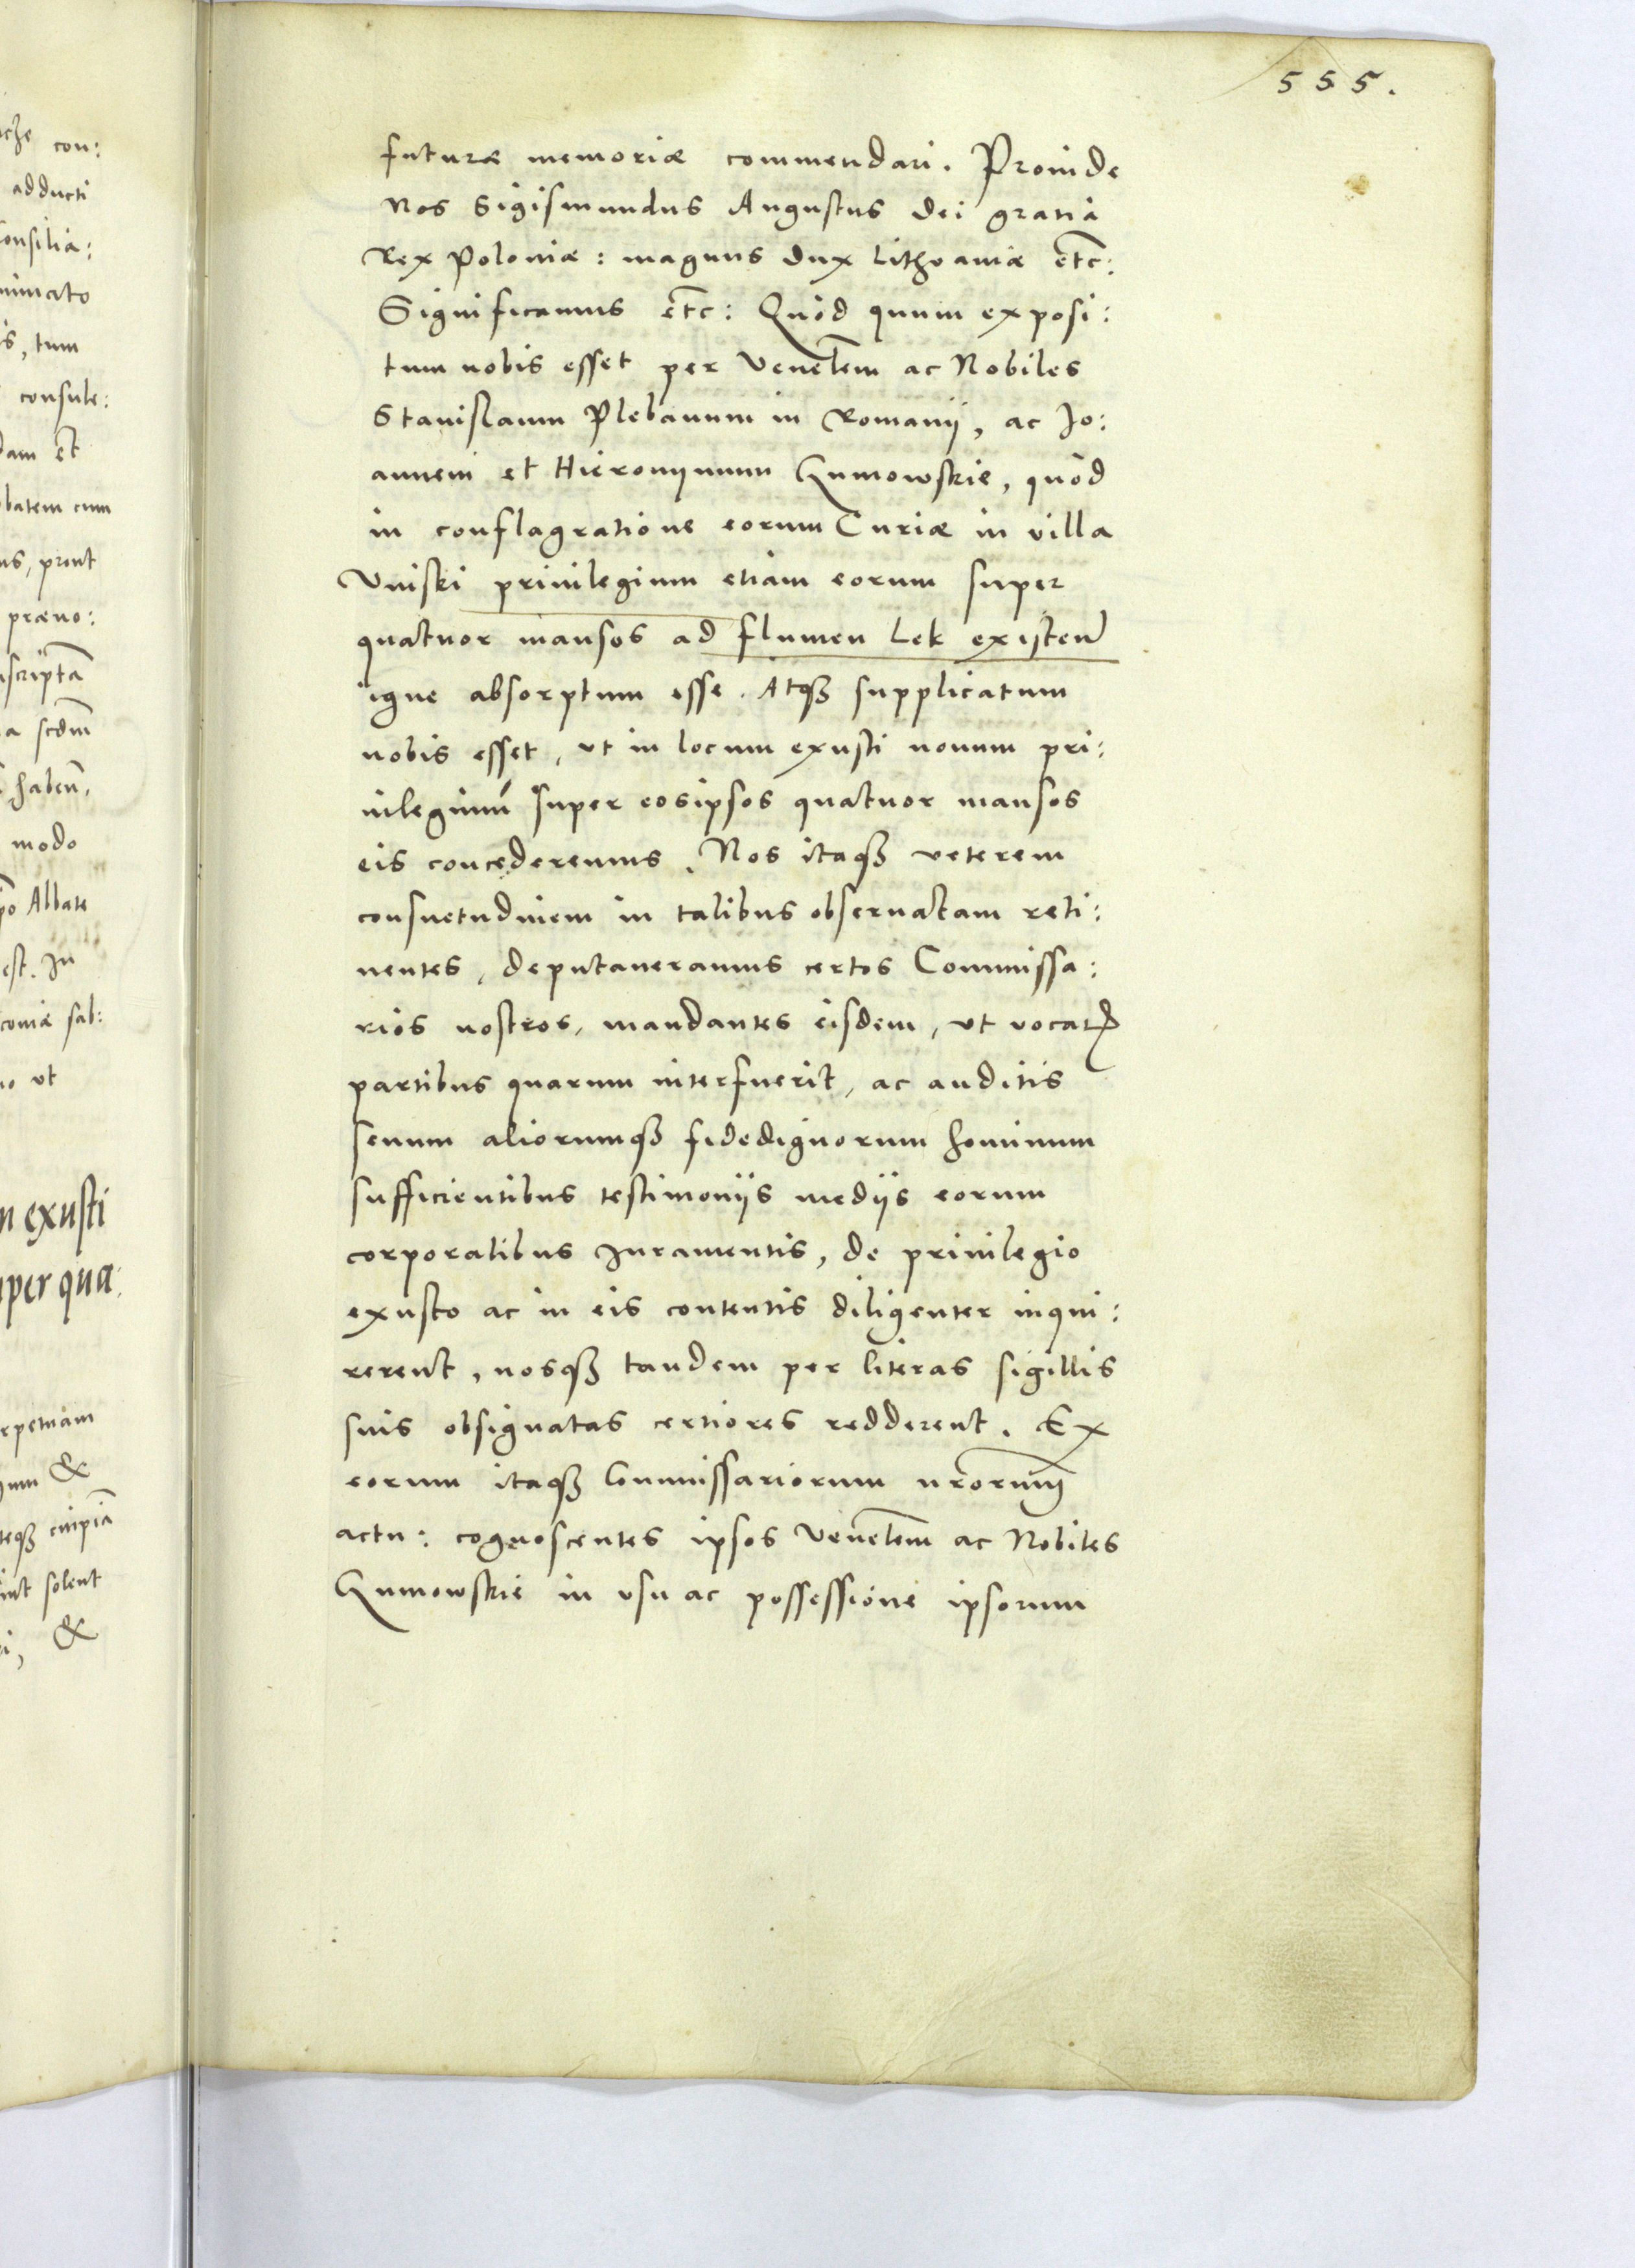 555.
futuræ memoriæ commendari. Proinde
Nos Sigismundus Augustus dei gratia
Rex Poloniæ: magnus dux Lithvaniæ etc:
Significamus etc: Quòd quum exposi:
tum nobis esset per Venełem ac Nobiles
Stanislaum Plebanum in Romanij, ac Jo:
annem et Hieronymum Gumowskie, quòd
in conflagratione eorum Curiæ in villa
Vniski priuilegium etiam eorum super
quatuor mansos ad flumen Lek existeñ
igne absorptum esse. Atqȝ supplicatum
nobis esset, vt in locum exusti nouum pri:
uilegium super eosipsos quatuor mansos
eis concederemus. Nos itaqȝ veterem
consuetudinem in talibus obseruatam reti:
nentes, deputaueramus certos Commissa:
rios nostros, mandantes eisdem, vt vocatꝭ
partibus quarum interfuerit, ac auditis
senum aliorumqȝ fidedignorum hominum
sufficientibus testimonijs medijs eorum
corporalibus iuramentis, de priuilegio
exusto ac in eis contentis diligenter inqui:
rerent, nosqȝ tandem per literas sigillis
suis obsignatas certiores redderent. Ex
eorum itaqȝ Commissariorum nrorum
actu: cognoscentes ipsos Venełem ac Nobiles
Gumowskie in vsu ac possessione ipsorum
con:
adducti
tum
consule:
modo
Albate
est. Jn
vt
exusti
solent
&